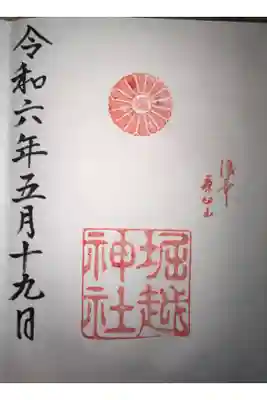 堀越
神社
令和六年五月十九日